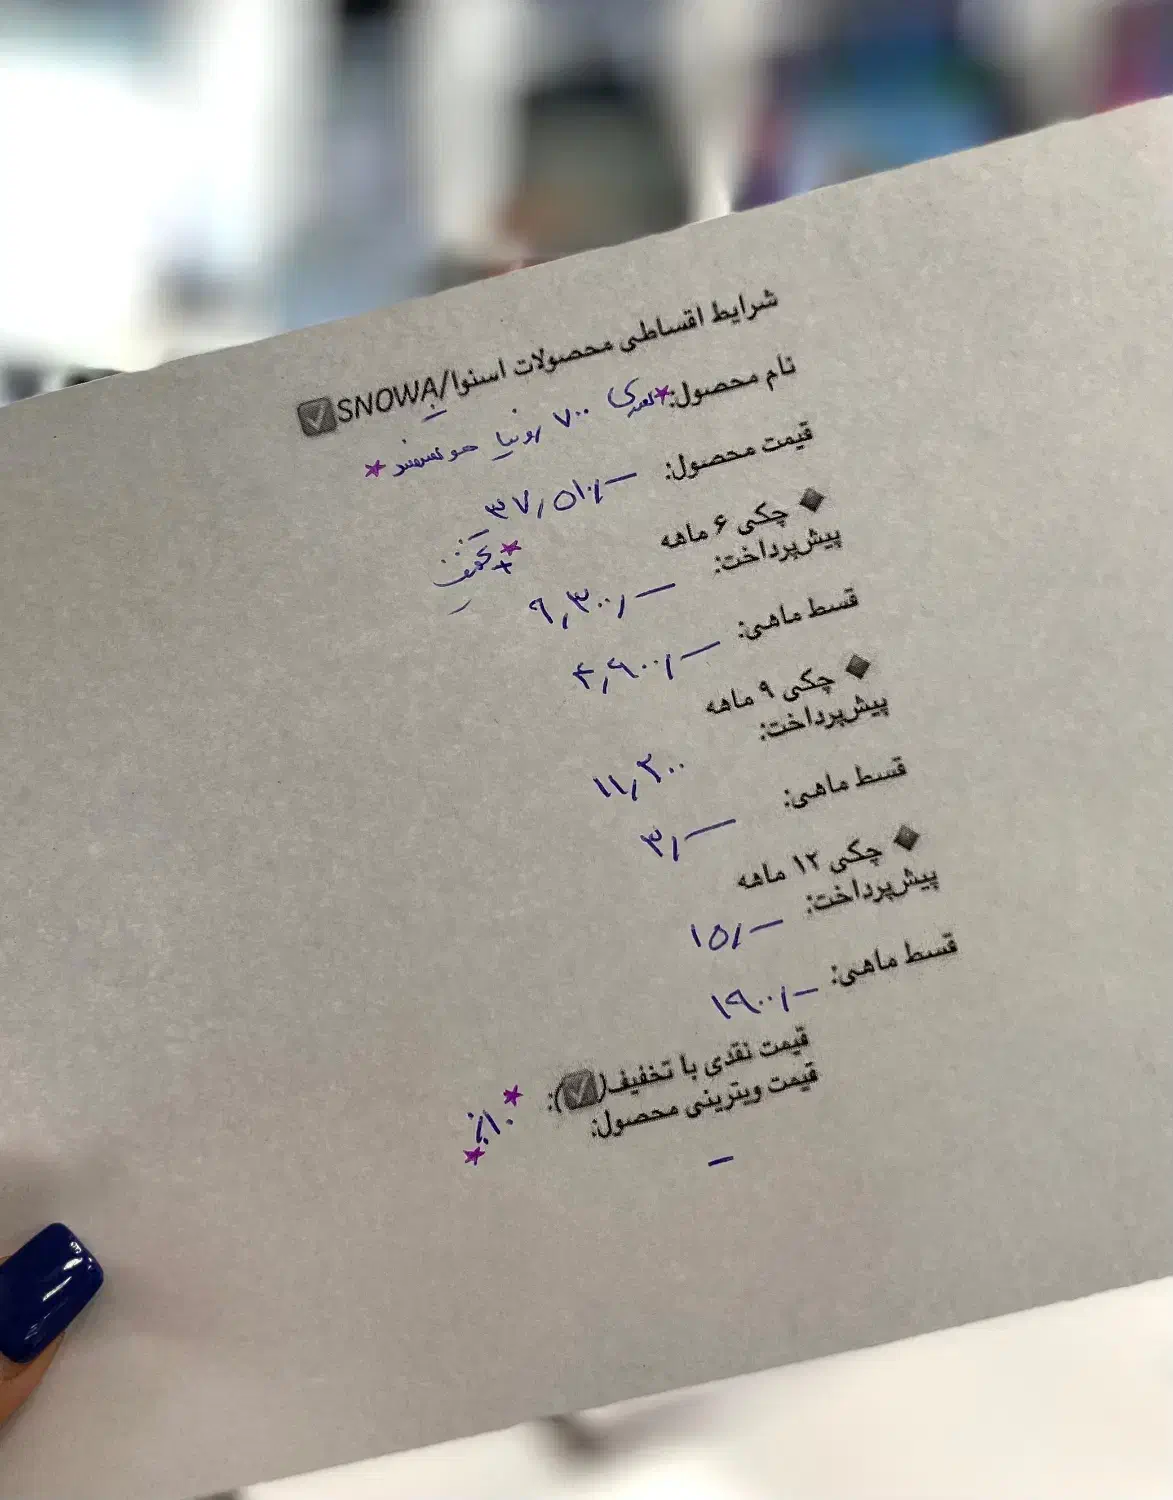 شرایط اقساطی محصولات اسنوا/SNOWA
نام محصول: سری ۷۰۰ رونیا هوشمند
قیمت محصول: ۳۷,۵۱۰,—
+ تخفیف
چکی ۶ ماهه
پیش‌پرداخت: ۹,۳۰۰,—
قسط ماهی: ۴,۹۰۰,—
چکی ۹ ماهه
پیش‌پرداخت: ۱۱,۲۰۰
قسط ماهی: ۳,—
چکی ۱۲ ماهه
پیش‌پرداخت: ۱۵,—
قسط ماهی: ۱۹۰۰,—
قیمت نقدی با تخفیف(✓): ۱۰٪
قیمت ویترینی محصول:
—